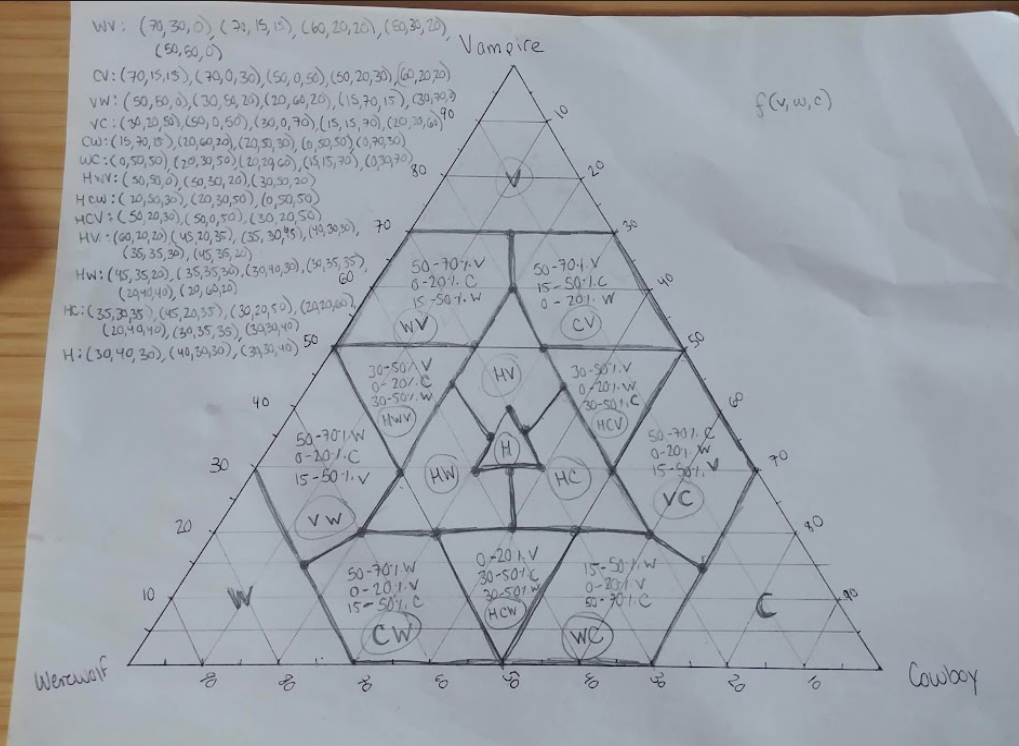 WV: (70,30,0), (70,15,15), (60,20,20), (50,30,20),
(50,50,0)
Vampire
CV: (70,15,15), (70,0,30), (50,0,50), (50,20,30), (60,20,20)
VW: (50,50,0), (30,50,20), (20,60,20), (15,70,15), (30,70,
VC: (30,20,50), (50,0,50), (30,0,70), (15,15,70), (20,20,60)
CW: (15,70,15), (20,60,20), (20,50,30), (0,50,50), (0,70,30)
WC: (0,50,50), (20,30,50), (20,20,60), (15,15,70), (0,30,70)
HWV: (50,50,0), (50,30,20), (30,50,20)
HCW: (20,50,30), (20,30,50), (0,50,50)
HCV: (50,20,30), (50,0,50), (30,20,50)
HV: (60,20,20) (45,20,35), (35,30,45), (40,30,30),
(35,35,30), (45,35,20)
HW: (45,35,20), (35,35,30), (30,40,30), (30,35,35),
(20,40,40), (20,60,20)
HC: (35,30,35), (45,20,35), (30,20,50), (20,20,60),
(20,40,40), (30,35,35), (30,30,40)
H: (30,40,30), (40,30,30), (30,30,40)
f(v,w,c)
90
10
80
V
20
70
30
60
50-70% V
0-20% C
15-50% W
WV
50-70% V
15-50% C
0-20% W
CV
40
50
30-50% V
0-20% C
30-50% W
HWV
HV
30-50% V
0-20% W
30-50% C
HCV
50
40
50-70% W
0-20% C
15-50% V
VW
HW
H
HC
50-70% C
0-20% W
15-50% V
VC
60
30
70
20
80
50-70% W
0-20% V
15-50% C
CW
0-20% V
30-50% C
30-50% W
HCW
15-50% W
0-20% V
50-70% C
WC
10
W
C
90
Werewolf
90
80
70
60
50
40
30
20
10
Cowboy